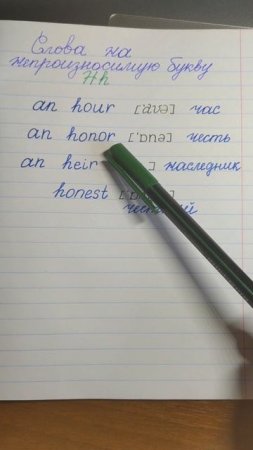 Слова на
непроизносимую букву
Hh
an hour ['auə] час
an honor ['ɒnə] честь
an heir ] наследник
honest [